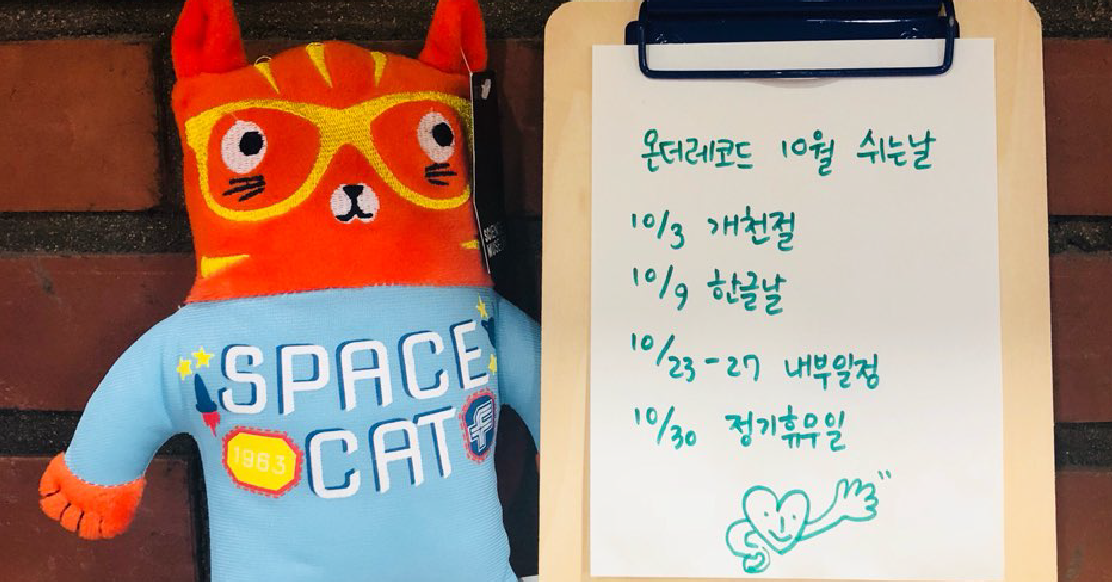 SPACE
CAT
1963
온더레코드 10월 쉬는날
10/3 개천절
10/9 한글날
10/23-27 내부일정
10/30 정기휴우일